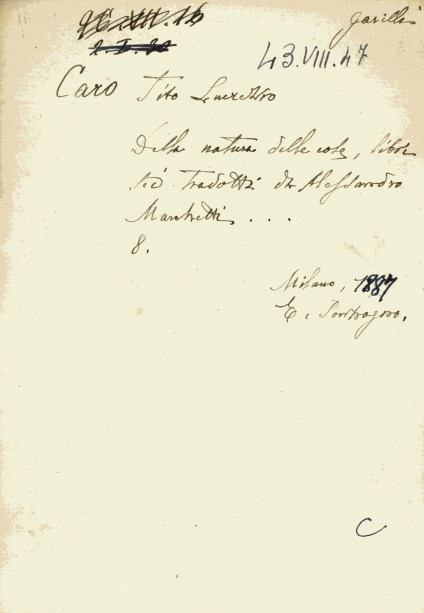 Garilli
43.VIII.47
Caro Tito Lucrezio
Della natura delle cose, libri
sei tradotti da Alessandro
Marchetti...
8.
Milano, 1887
E. Sonzogno.
C